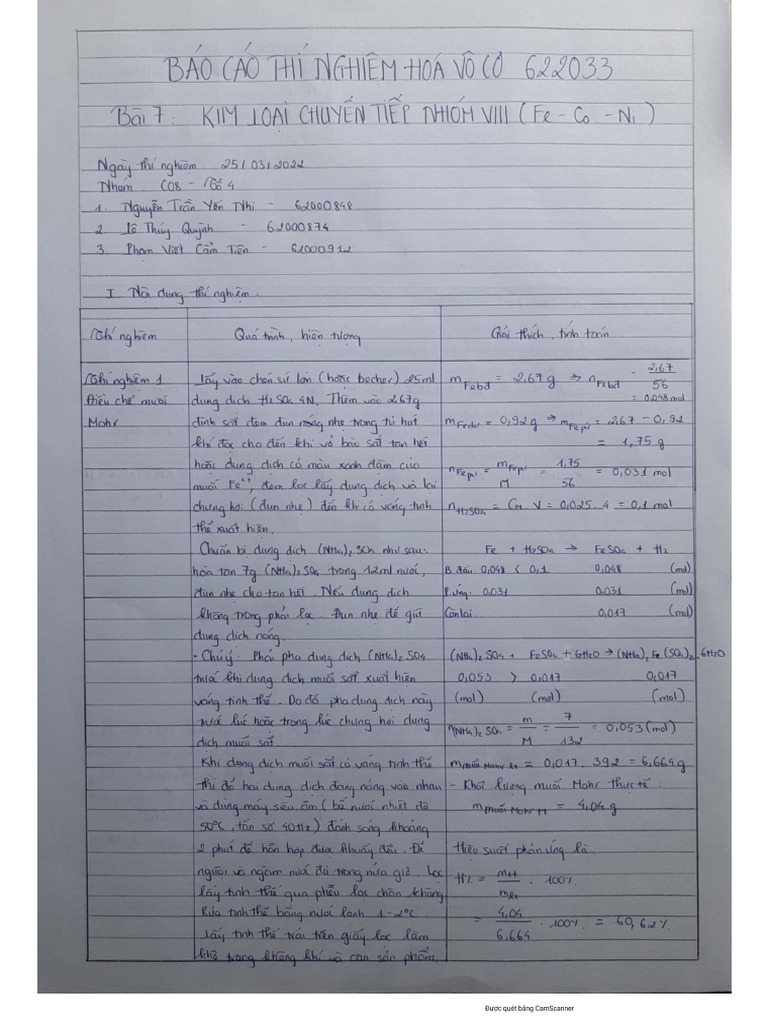 BÁO CÁO THÍ NGHIỆM HOÁ VÔ CƠ 622033
Bài 7: KIM LOẠI CHUYỂN TIẾP NHÓM VIII (Fe - Co - Ni)
Ngày thí nghiệm: 25/03/2022
Nhóm: C08 - Tổ 4
1. Nguyễn Trần Yến Nhi - 62000848
2. Lê Thúy Quỳnh - 62000874
3. Phạm Viết Cẩm Tiên - 62000912
I. Nội dung thí nghiệm.
Thí nghiệm
Quá trình, hiện tượng
Giải thích, tính toán
Thí nghiệm 1
Điều chế muối
Mohr
Lấy vào chén sứ lớn (hoặc becher) 25ml
dung dịch H2SO4 4N. Thêm vào 2,67g
đinh sắt đem đun nóng nhẹ trong tủ hút
khí độc cho đến khi vỏ bào sắt tan hết
hoặc dung dịch có màu xanh đậm của
muối Fe2+, đem lọc lấy dung dịch và lại
chưng hơi (đun nhẹ) đến khi có váng tinh
thể xuất hiện.
Chuẩn bị dung dịch (NH4)2SO4 như sau:
hòa tan 7g (NH4)2SO4 trong 12ml nước,
đun nhẹ cho tan hết. Nếu dung dịch
không trong phải lọc. Đun nhẹ để giữ
dung dịch nóng.
- Chú ý: Phải pha dung dịch (NH4)2SO4
trước khi dung dịch muối sắt xuất hiện
váng tinh thể. Do đó pha dung dịch này
trước lúc hoặc trong lúc chưng hơi dung
dịch muối sắt.
Khi dung dịch muối sắt có váng tinh thể
thì đổ hai dung dịch đang nóng vào nhau
và dùng máy siêu âm (bể nước nhiệt độ
50°C, tần số 40Hz) đánh sóng khoảng
2 phút để hỗn hợp được khuấy đều. Để
nguội và ngâm nước đá trong nửa giờ. Lọc
lấy tinh thể qua phễu lọc chân không.
Rửa tinh thể bằng nước lạnh 1-2°C.
Lấy tinh thể trải trên giấy lọc làm
khô trong không khí và cân sản phẩm.
mFebđ = 2,67g => nFebđ = 2,67/56
= 0,048mol
mFedư = 0,92g => mFepứ = 2,67 - 0,92
= 1,75g
nFepứ = mFepứ/M = 1,75/56 = 0,031 mol
nH2SO4 = CM . V = 0,025 . 4 = 0,1 mol
Fe + H2SO4 → FeSO4 + H2
B.đầu: 0,048 < 0,1 0,048 (mol)
P.ứng: 0,031 0,031 (mol)
Còn lại: 0,017 (mol)
(NH4)2SO4 + FeSO4 + 6H2O → (NH4)2Fe(SO4)2.6H2O
0,053 > 0,017 0,017
(mol) (mol) (mol)
n(NH4)2SO4 = m/M = 7/132 = 0,053 (mol)
mmuối Mohr lt = 0,017 . 392 = 6,664g
- Khối lượng muối Mohr thực tế:
mmuối Mohr tt = 4,04g
Hiệu suất phản ứng là
H% = mtt/mlt . 100%
= 4,04/6,664 . 100% = 60,62%
Được quét bằng CamScanner